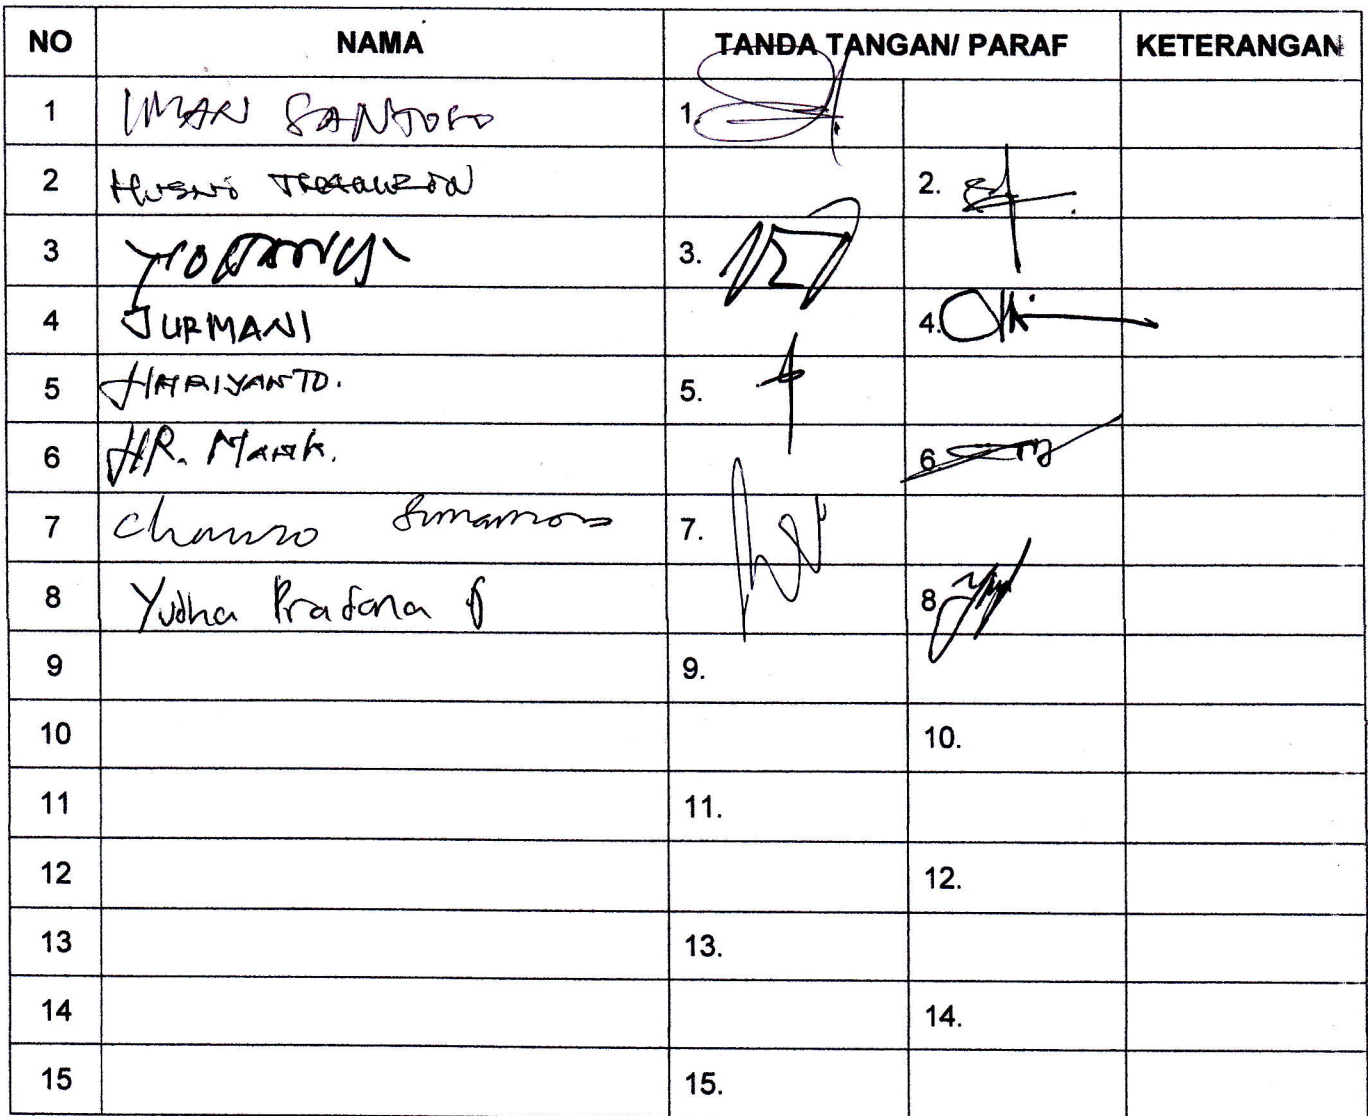 NO NAMA TANDA TANGAN/ PARAF KETERANGAN
1 IMAN SANTOSO 1.
2 HUSNI 2.
3 3.
4 JURMANI 4.
5 HARIYANTO. 5.
6 HR. Manik. 6
7 7.
8 Yudha Pratana P 8
9 9.
10 10.
11 11.
12 12.
13 13.
14 14.
15 15.